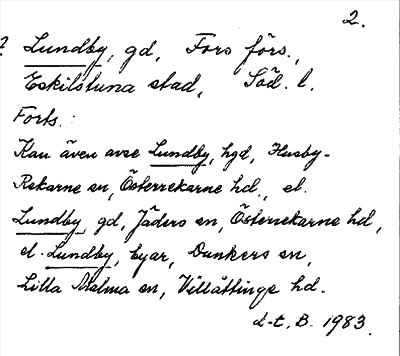 2.
? Lundby, gd, Fors förs.,
Eskilstuna stad, Söd. l.
Forts.:
Kan även avse Lundby, hgd, Husby-
Rekarne sn, Österrekarne hd., el.
Lundby, gd, Jäders sn, Österrekarne hd,
el. Lundby, byar, Dunkers sn,
Lilla Malma sn, Villåttinge hd.
d-t, B. 1983.